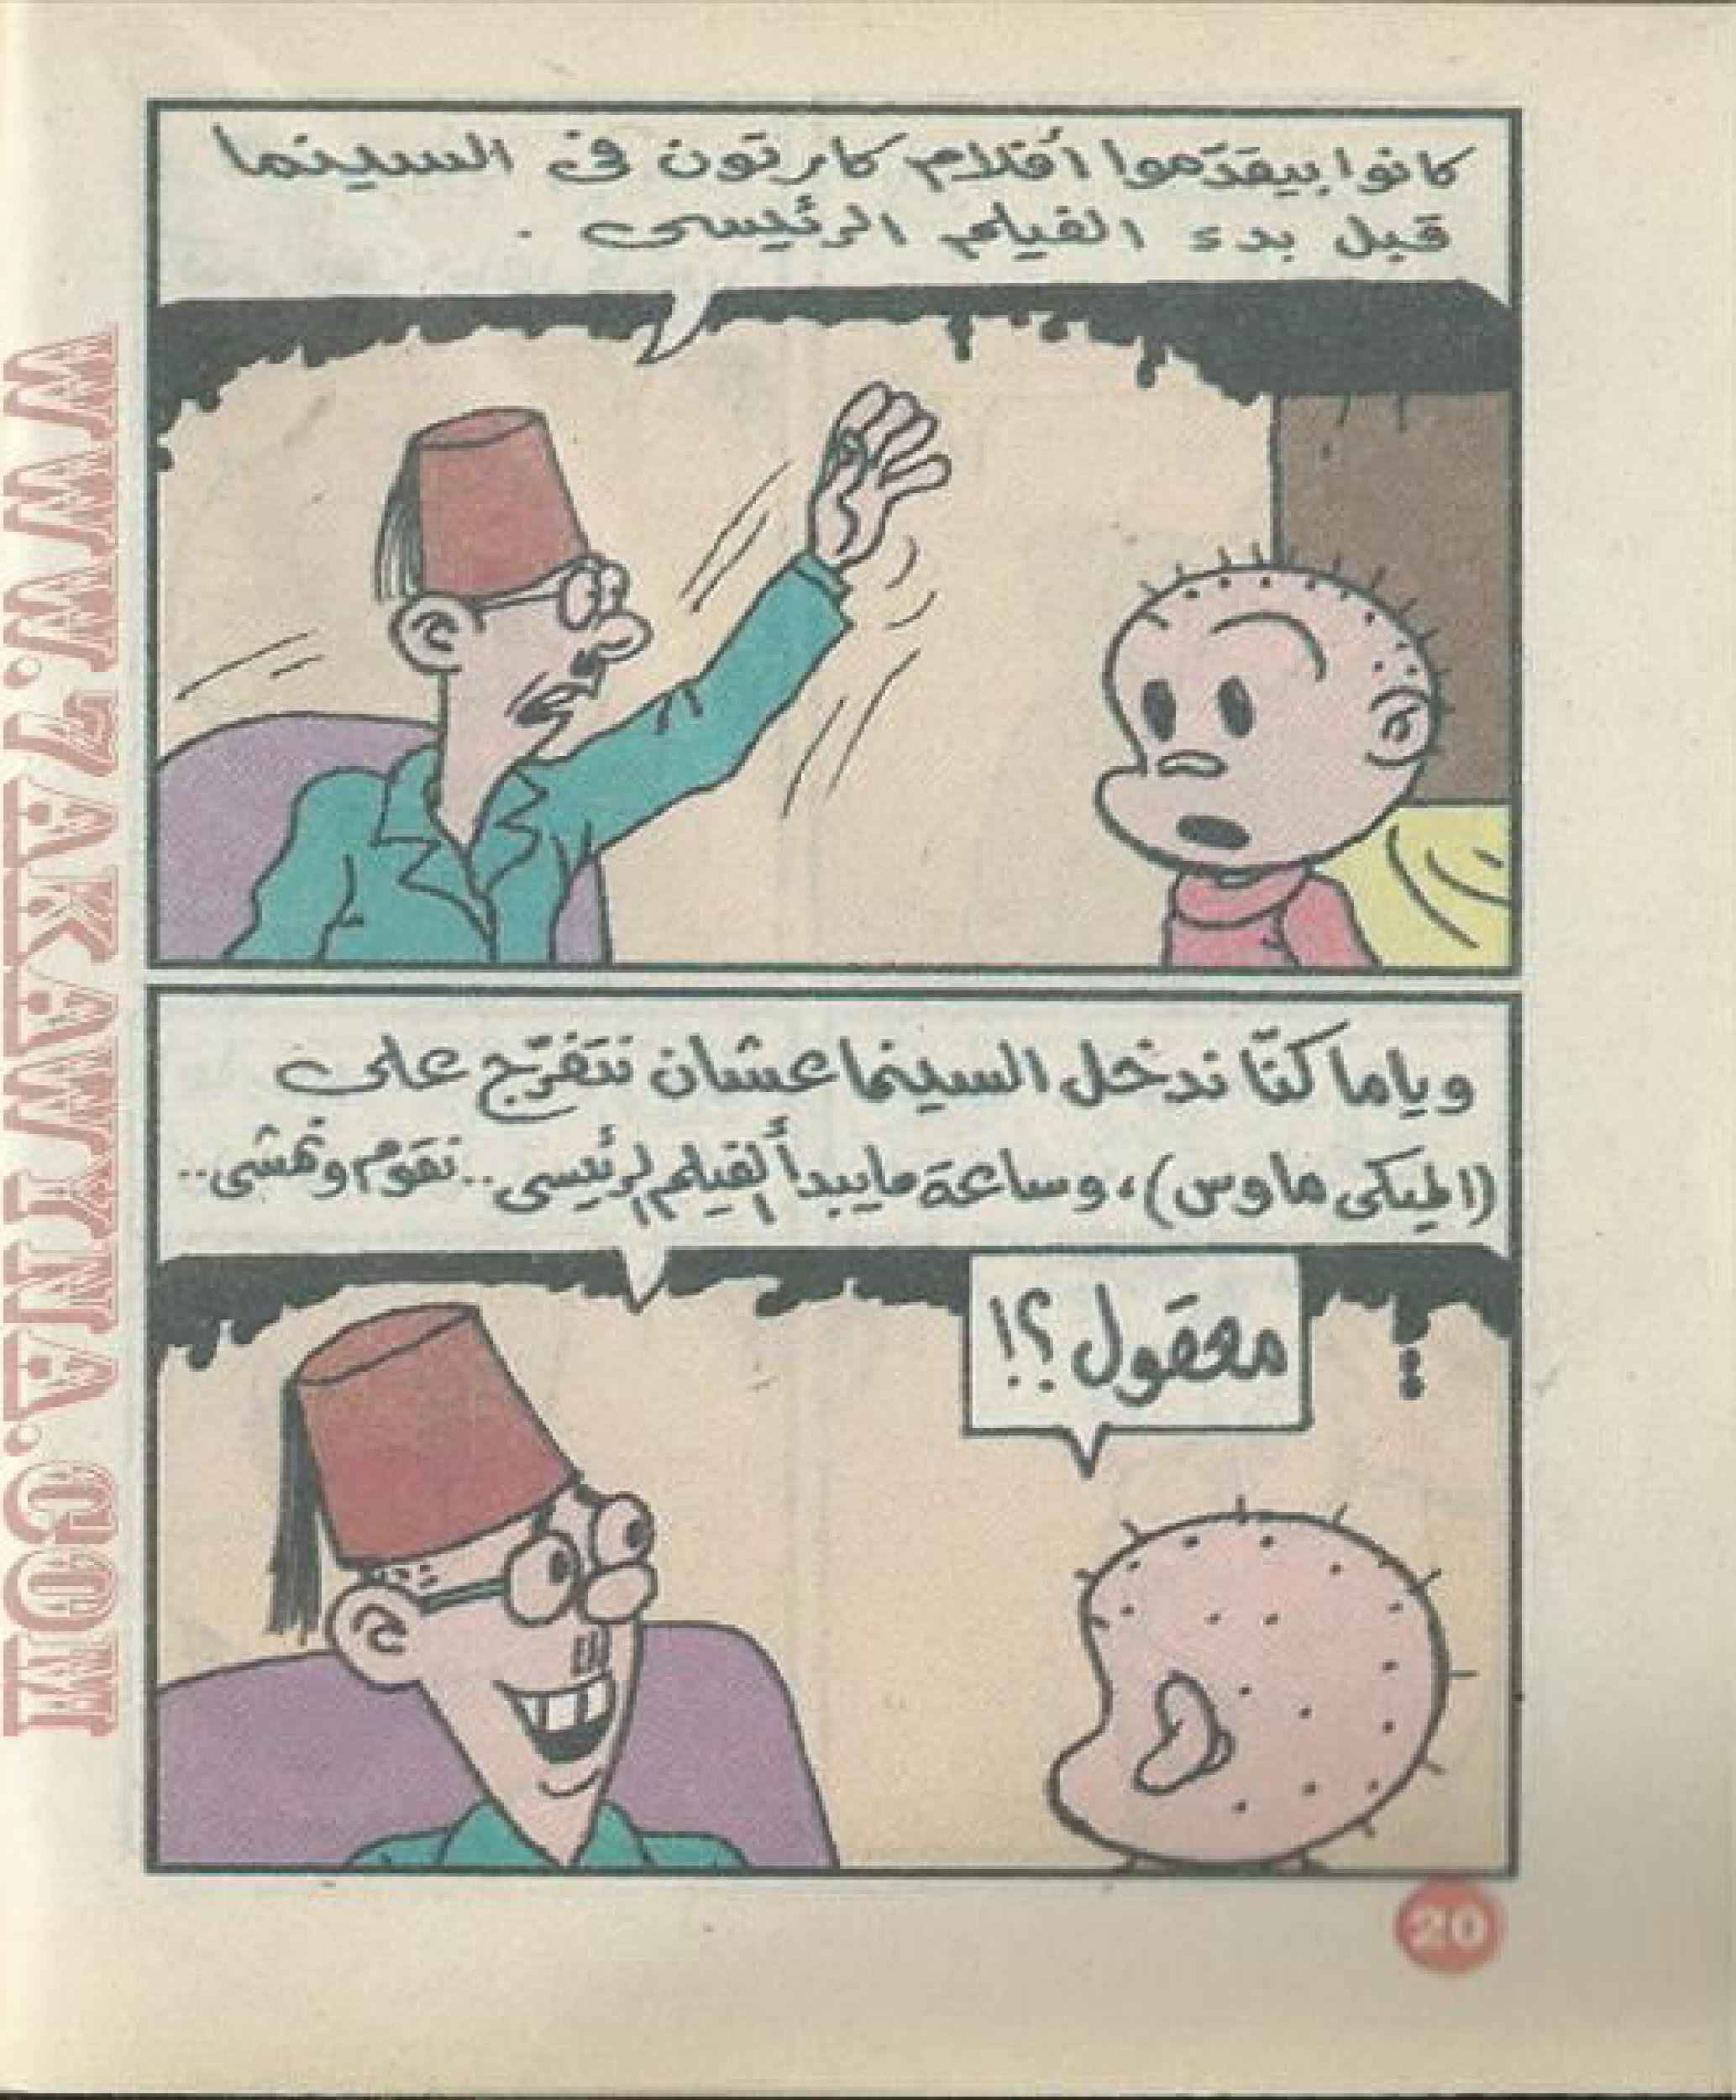 كانوا بيقدّموا أفلام كارتون في السينما
قبل بدء الفيلم الرئيسى .
وياما كنّا ندخل السينما عشان نتفرّج على
(الميكى ماوس)، وساعة مايبدأ الفيلم الرئيسى.. نقوم ونمشى..
معقول؟!
20
WWW.7AKAWITNA.COM